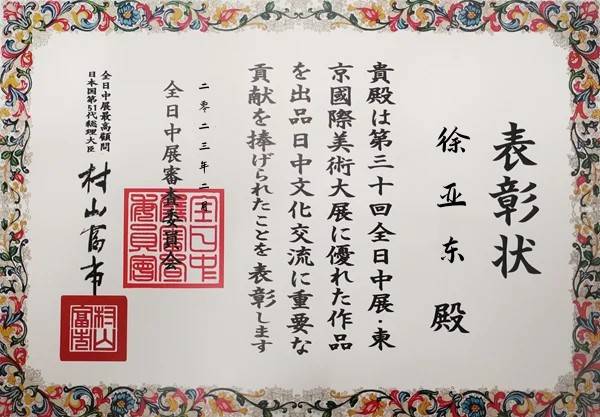 表彰状
徐亚东 殿
貴殿は第三十回全日中展・東
京國際美術大展に優れた作品
を出品日中文化交流に重要な
貢献を捧げられたことを表彰します
二零二三年二月
全日中展審査委員会
全日中展最高顧問
日本国第81代総理大臣
村山富市
村山富市